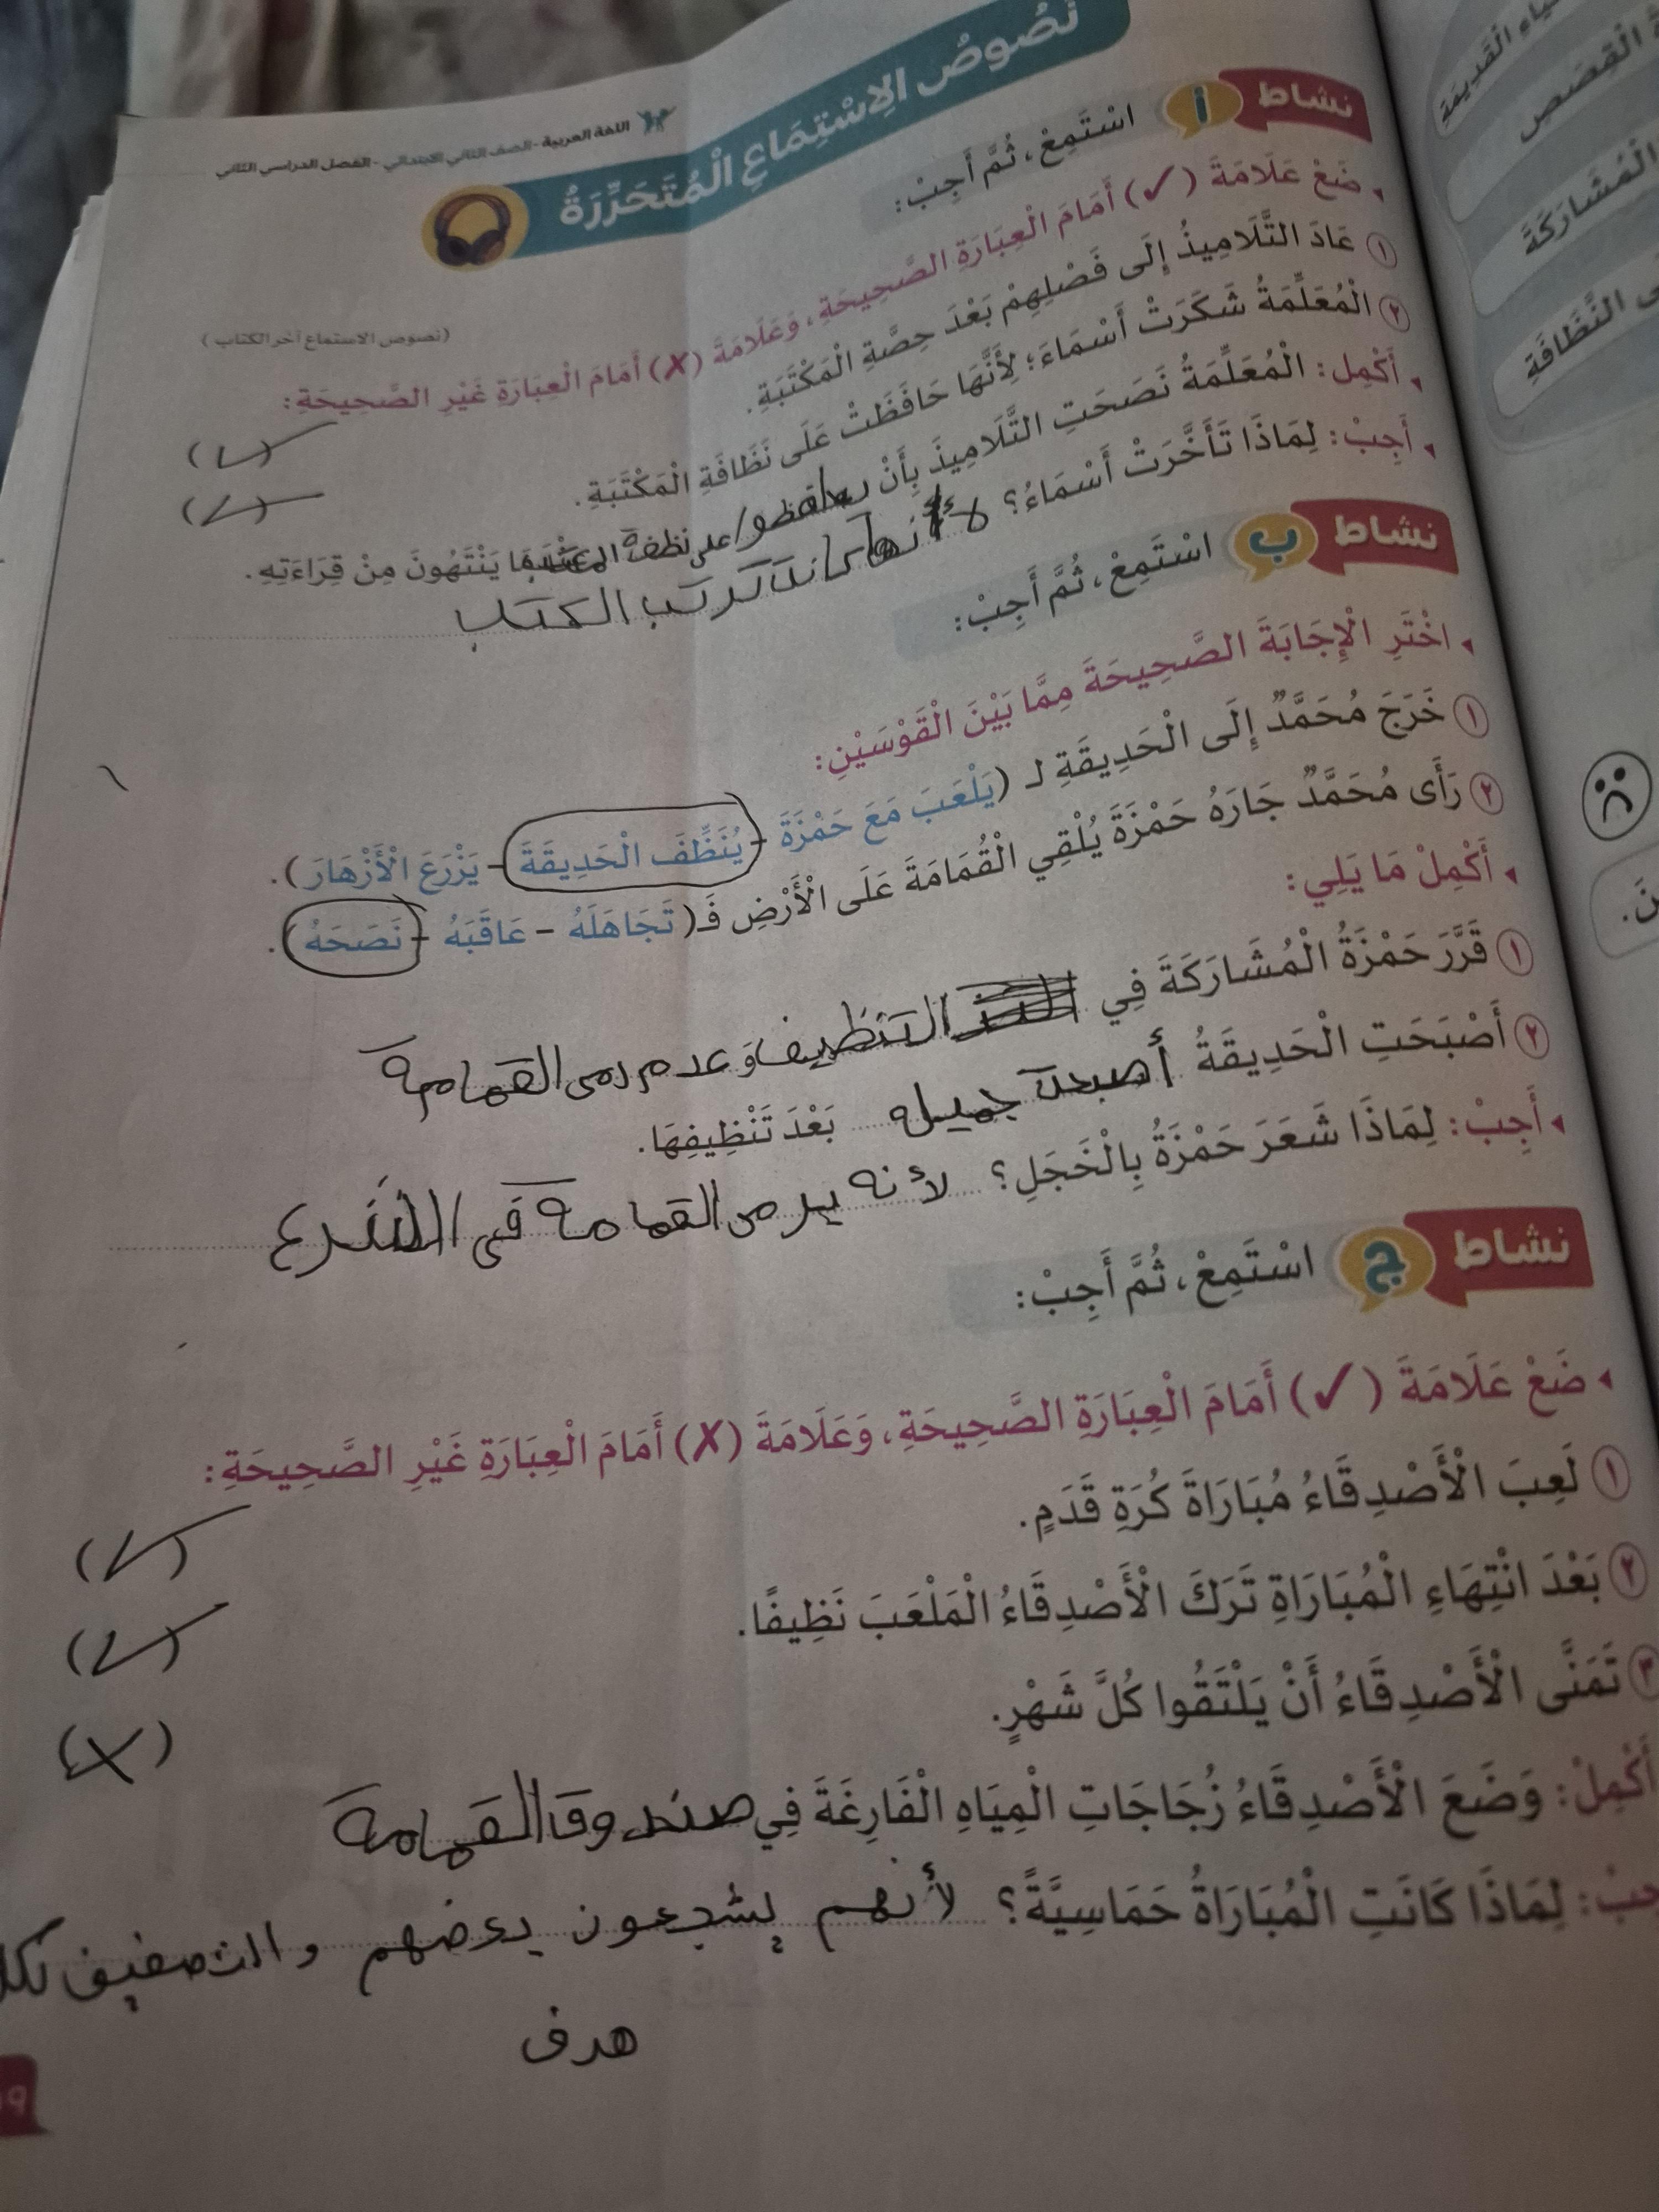 اللغة العربية - الصف الثاني الابتدائي - الفصل الدراسي الثاني
نُصُوصُ الِاسْتِمَاعِ الْمُتَحَرِّرَةُ
نشاط أ اسْتَمِعْ، ثُمَّ أَجِبْ:
(نصوص الاستماع آخر الكتاب)
ضَعْ عَلَامَةَ (✓) أَمَامَ الْعِبَارَةِ الصَّحِيحَةِ، وَعَلَامَةَ (✗) أَمَامَ الْعِبَارَةِ غَيْرِ الصَّحِيحَةِ:
١ عَادَ التَّلَامِيذُ إِلَى فَصْلِهِمْ بَعْدَ حِصَّةِ الْمَكْتَبَةِ. (✓)
٢ الْمُعَلِّمَةُ شَكَرَتْ أَسْمَاءَ؛ لِأَنَّهَا حَافَظَتْ عَلَى نَظَافَةِ الْمَكْتَبَةِ. (✓)
أَكْمِل: الْمُعَلِّمَةُ نَصَحَتِ التَّلَامِيذَ بِأَنْ يحافظوا على نظفة يَنْتَهُونَ مِنْ قِرَاءَتِهِ.
أَجِبْ: لِمَاذَا تَأَخَّرَتْ أَسْمَاءُ؟ لأنها كانت ترتب الكتاب
نشاط ب اسْتَمِعْ، ثُمَّ أَجِبْ:
اخْتَرِ الْإِجَابَةَ الصَّحِيحَةَ مِمَّا بَيْنَ الْقَوْسَيْنِ:
١ خَرَجَ مُحَمَّدٌ إِلَى الْحَدِيقَةِ لـ (يَلْعَبَ مَعَ حَمْزَةَ - يُنَظِّفَ الْحَدِيقَةَ - يَزْرَعَ الْأَزْهَارَ).
٢ رَأَى مُحَمَّدٌ جَارَهُ حَمْزَةَ يُلْقِي الْقُمَامَةَ عَلَى الْأَرْضِ فَـ (تَجَاهَلَهُ - عَاقَبَهُ - نَصَحَهُ).
أَكْمِلْ مَا يَلِي:
١ قَرَّرَ حَمْزَةُ الْمُشَارَكَةَ فِي التنظيف وعدم رمى القمامة
٢ أَصْبَحَتِ الْحَدِيقَةُ أصبحت جميله بَعْدَ تَنْظِيفِهَا.
أَجِبْ: لِمَاذَا شَعَرَ حَمْزَةُ بِالْخَجَلِ؟ لأنه يرمى القمامة فى الشرع
نشاط ج اسْتَمِعْ، ثُمَّ أَجِبْ:
ضَعْ عَلَامَةَ (✓) أَمَامَ الْعِبَارَةِ الصَّحِيحَةِ، وَعَلَامَةَ (✗) أَمَامَ الْعِبَارَةِ غَيْرِ الصَّحِيحَةِ:
١ لَعِبَ الْأَصْدِقَاءُ مُبَارَاةَ كُرَةِ قَدَمٍ. (✓)
٢ بَعْدَ انْتِهَاءِ الْمُبَارَاةِ تَرَكَ الْأَصْدِقَاءُ الْمَلْعَبَ نَظِيفًا. (✓)
٣ تَمَنَّى الْأَصْدِقَاءُ أَنْ يَلْتَقُوا كُلَّ شَهْرٍ. (✗)
أَكْمِلْ: وَضَعَ الْأَصْدِقَاءُ زُجَاجَاتِ الْمِيَاهِ الْفَارِغَةَ فِي صندوق القمامة
جِبْ: لِمَاذَا كَانَتِ الْمُبَارَاةُ حَمَاسِيَّةً؟ لأنهم يشجعون بعضهم و التصفيف لكل
هدف
الْقَدِيمَةِ
الْقِصَصِ
الْمُشَارَكَةُ
النَّظَافَةِ